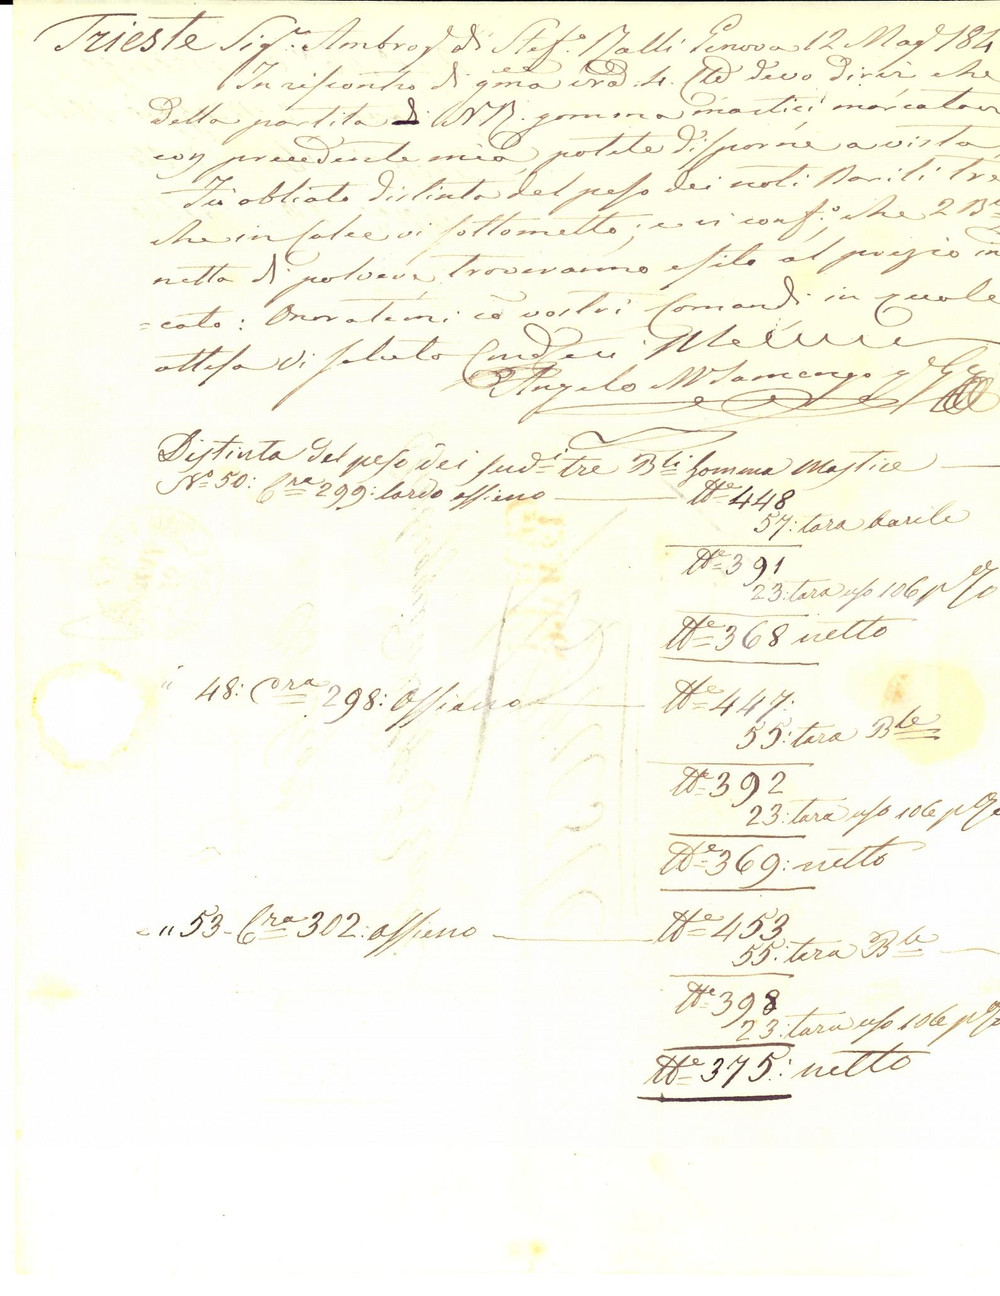 Trieste Sig.ri Ambrog.o di Stef.o Ralli Genova 12 Mag.o 184
In riscontro di g.ma vra d. 4. C.te devo dirvi che
della partita di N B. gomma mastici marcatavi
con precedente mia, potete disporne a vista
Più abbiate distinta del peso dei noti Barili tre
che in Calce vi sottometto; e vi conf.o che 2 B.li
netta di polvere troveranno esito al prezzo in
=cato: Onoratemi co vostri Comandi in quale
attesa vi saluto
Angelo M
Distinta del peso dei sud.i tre B.li Gomma Mastice
N.o 50: C.ra 299: lordo assieno ₶ 448
57: tara barile
₶ 391
23: tara uso 106 p %
₶ 368 netto
" 48: C.ra 298: assieno ₶ 447:
55: tara B.le
₶ 392
23: tara uso 106 p %
₶ 369: netto
" 53 - C.ra 302: assieno ₶ 453
55: tara B.le
₶ 398
23: tara uso 106 p %
₶ 375: netto